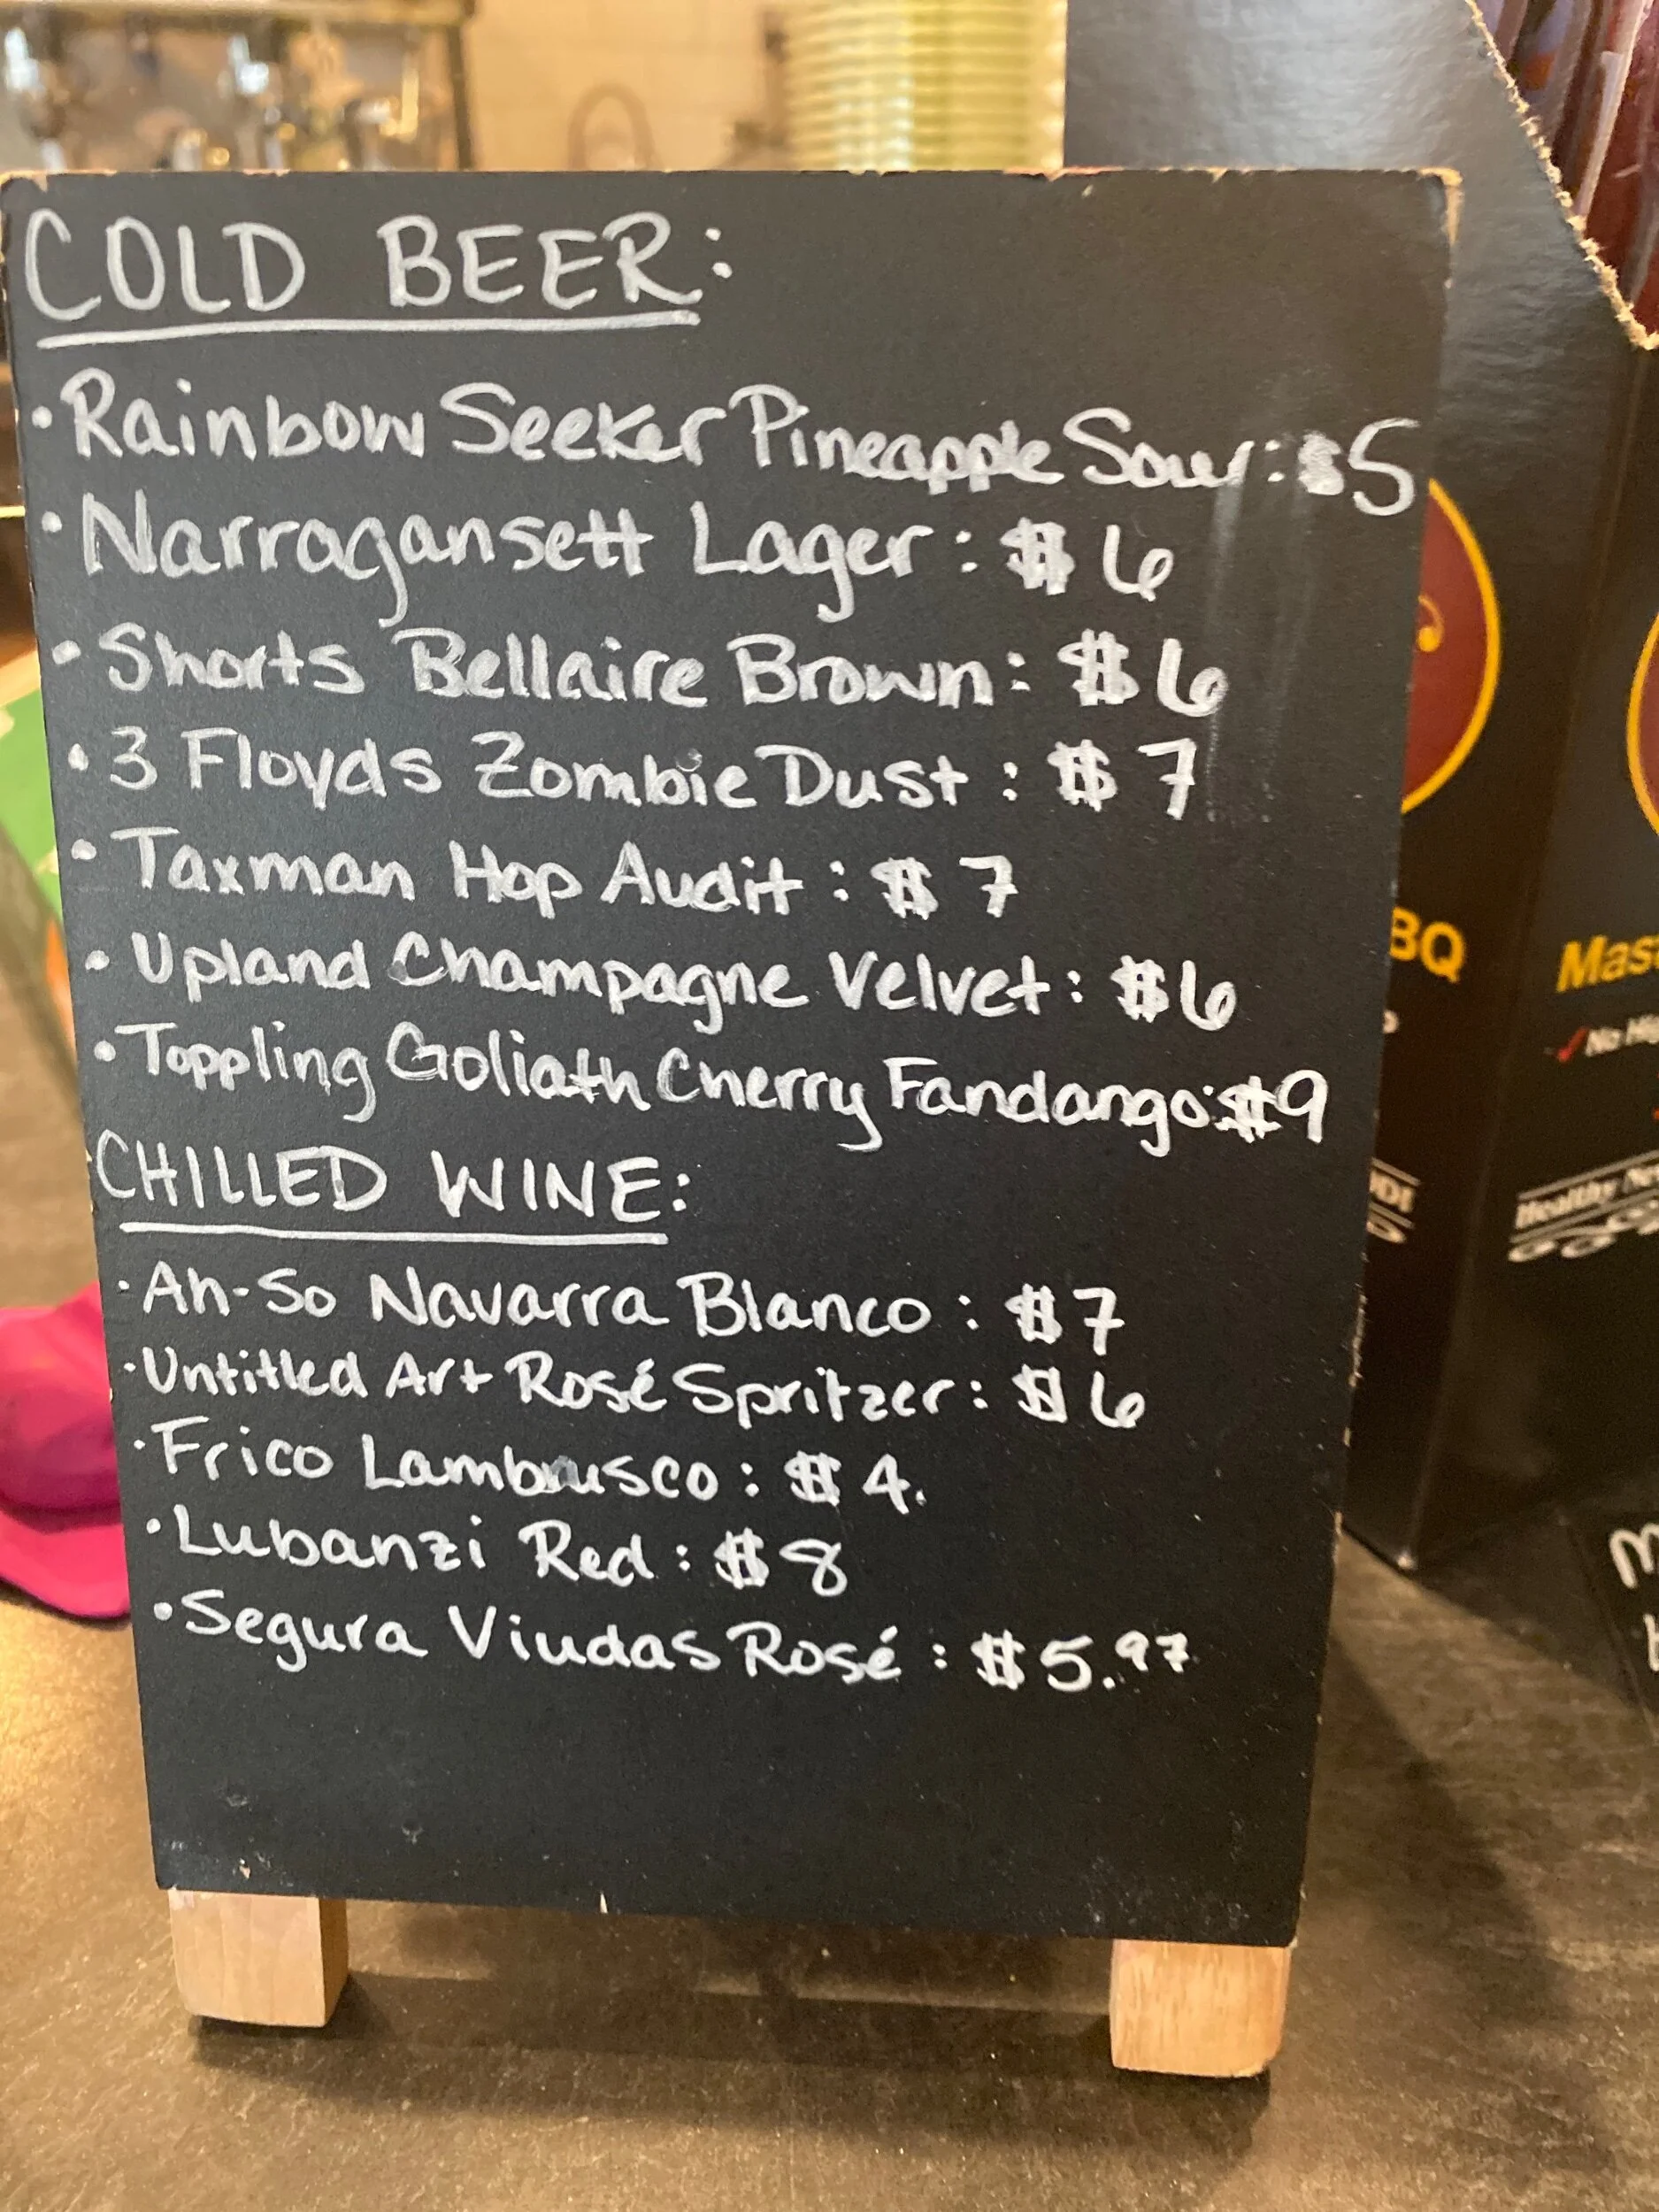 COLD BEER:
• Rainbow Seeker Pineapple Sour: $5
• Narragansett Lager: $6
• Shorts Bellaire Brown: $6
• 3 Floyds Zombie Dust: $7
• Taxman Hop Audit: $7
• Upland Champagne Velvet: $6
• Toppling Goliath Cherry Fandango: $9
CHILLED WINE:
• Ah-So Navarra Blanco: $7
• Untitled Art Rosé Spritzer: $6
• Frico Lambrusco: $4.
• Lubanzi Red: $8
• Segura Viudas Rosé: $5.97
BQ
Mas
No Hi
Healthy